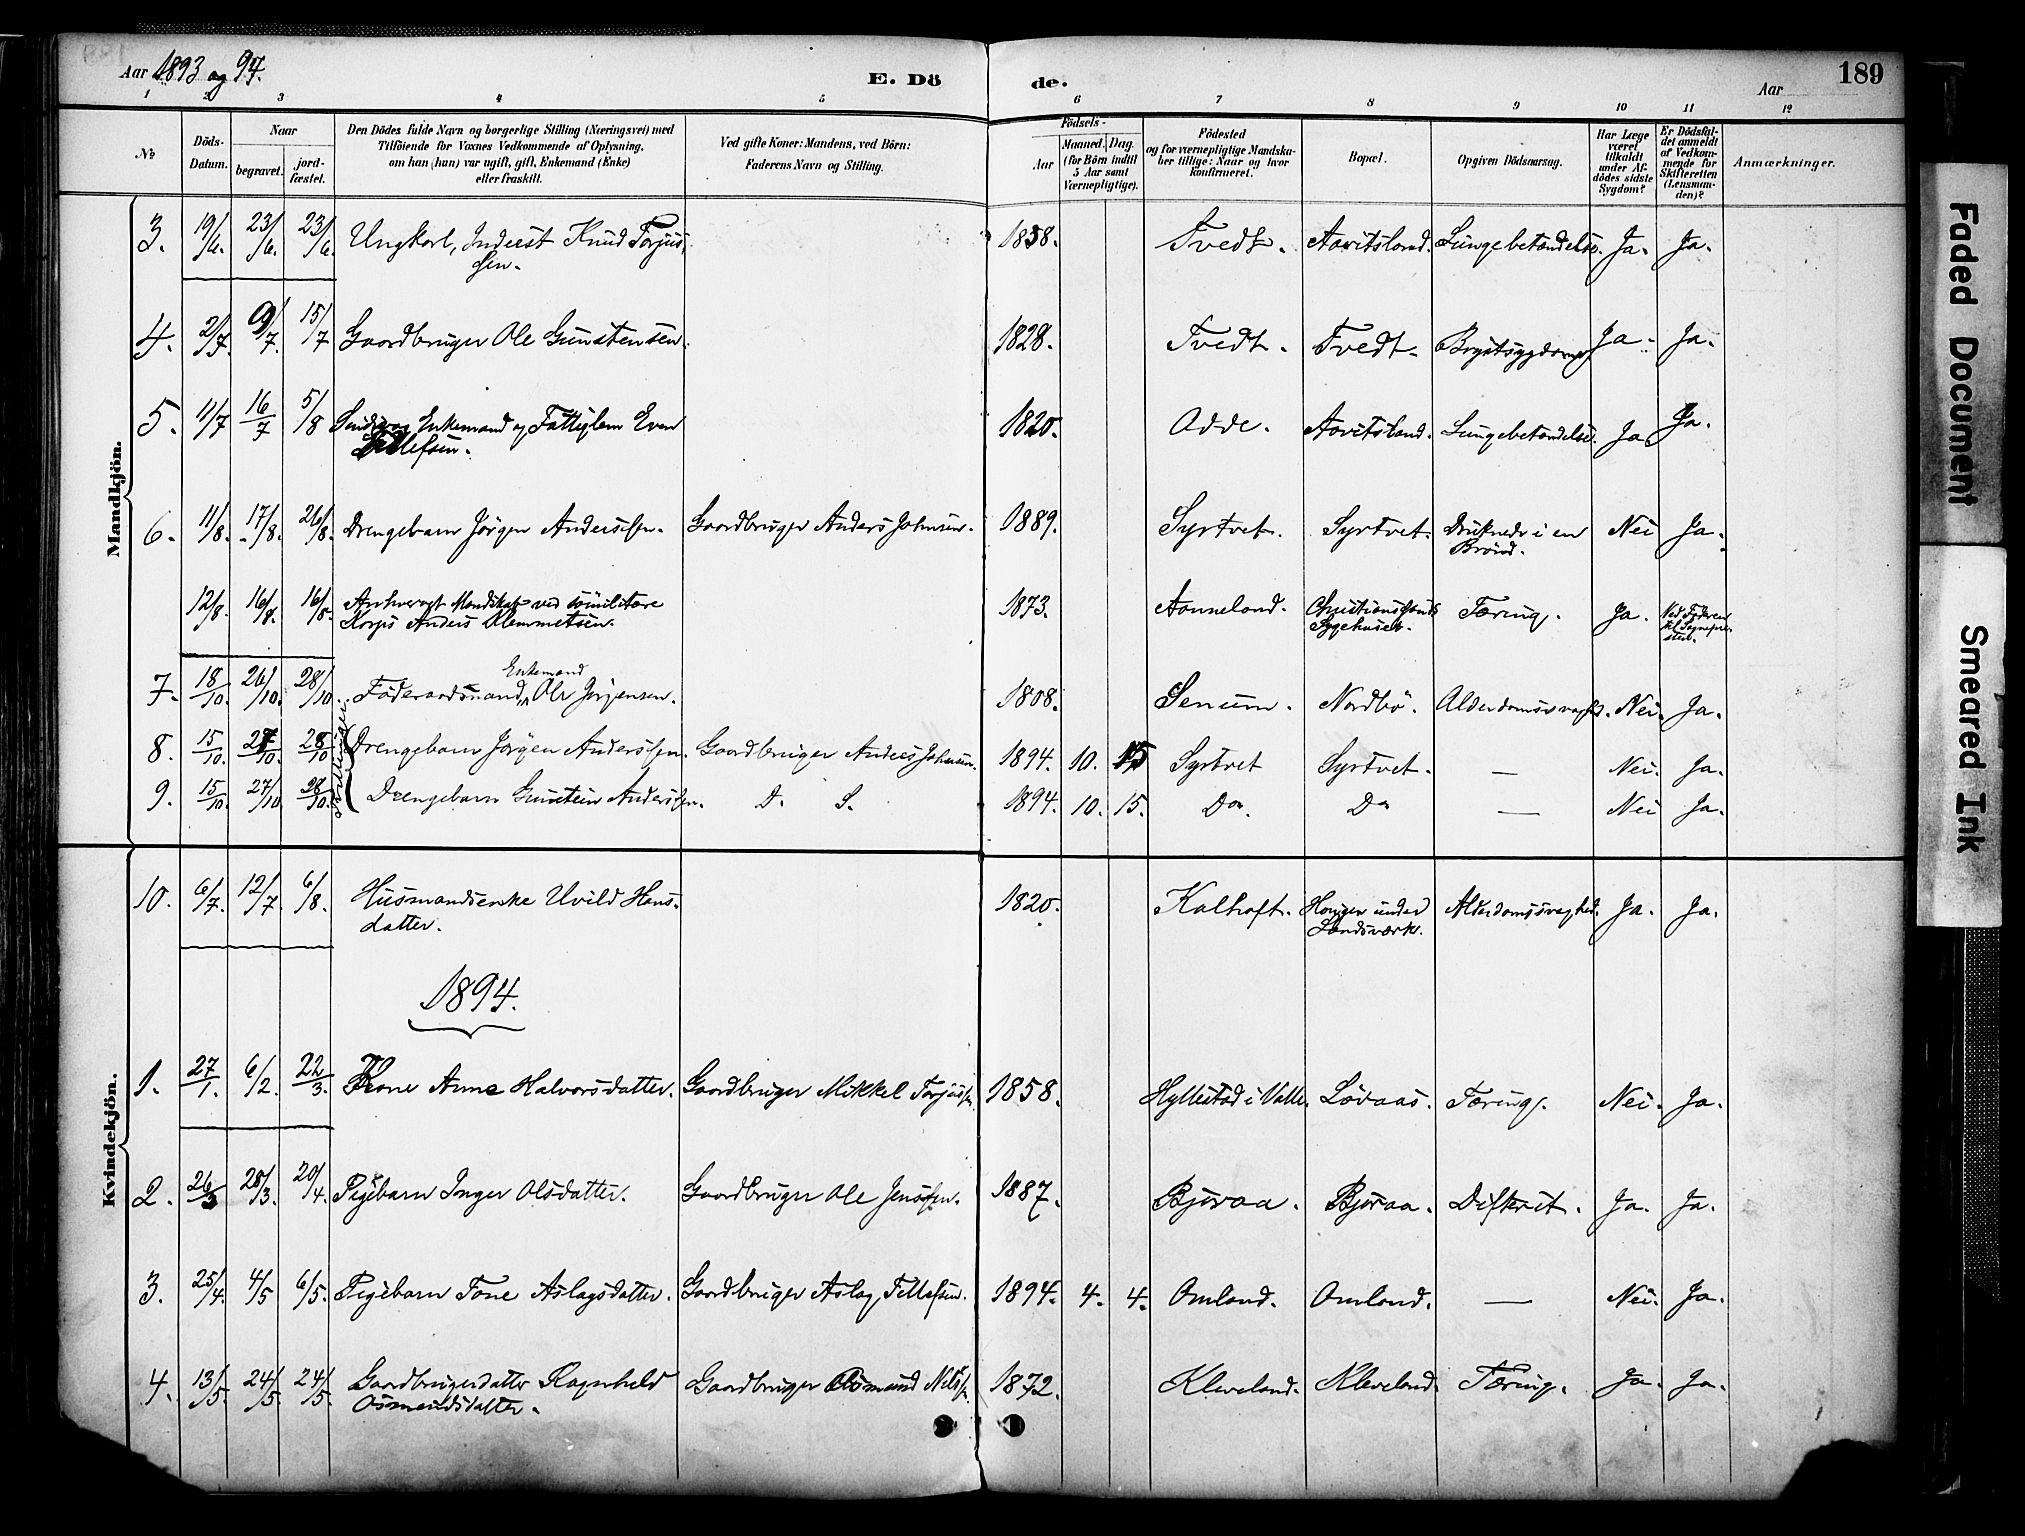 Aar 1893 og 94.
E. Dö de.
Aar
189
1 2 3 4 5 6 7 8 9 10 11 12
№
Döds-Datum.
Naar
begravet.
jord-fæstet.
Den Dödes fulde Navn og borgerlige Stilling (Næringsvei) med
Tilföiende for Voxnes Vedkommende af Oplysning,
om han (hun) var ugift, gift, Enkemand (Enke)
eller fraskilt.
Ved gifte Koner: Mandens, ved Börn:
Faderens Navn og Stilling.
Födsels-
Aar
Maaned. Dag.
(for Börn indtil
5 Aar samt
Værnepligtige).
Födested
og for værnepligtige Mandska-
ber tillige: Naar og hvor
konfirmeret.
Bopæl.
Opgiven Dödsaarsag.
Har Læge
været
tilkaldt
under Af-
dödes sidste
Sygdom?
Er Dödsfal-
det anmeldt
af Vedkom-
mende for
Skifteretten
(Lensman-
den)?
Anmærkninger.
Mandkjön.
3. 19/6. 23/6. 23/6. Ungkarl, Inderst Knud Torjus- 1838. Tvedt. Aavitsland. Lungebetændelse. Ja. Ja.
sen.
4. 2/7. 9/7. 15/7 Gaardbruger Ole Gunstensen. 1828. Tvedt. Tvedt. Brystsygdom Ja. Ja.
5. 11/7 16/7 5/8 Enkemand og Fattiglem Even 1820. Odde. Aavitsland. Lungebetændelse. Ja Ja.
6. 11/8. 17/8. 26/8. Drengebarn Jörgen Anderssen. Gaardbruger Anders Johnsen. 1889. Syrtvet. Syrtvet. Druknede i en Nei Ja.
Brönd.
12/8. 16/8. 16/8. Anhvervet Mandskab ved militære 1873. Aanneland. Christianssands Tæring. Ja.
Korps Anders Klemmetsen. Sygehuset.
7. 18/10. 26/10. 28/10. Föderaadsmand, Enkemand Ole Jörgensen. 1808. Senum. Nordbö. Alderdomssvagh. Nei. Ja.
8. 15/10. 27/10. 28/10 Drengebarn Jörgen Anderssen. Gaardbruger Anders Johnsen. 1894. 10. 15 Syrtvet Syrtvet. — Nei. Ja.
9. 15/10. 27/10 28/10. Drengebarn Gunstein Anderssen. D. S. 1894. 10. 15. Do. Do — Nei Ja.
Kvindekjön.
10. 6/7. 12/7. 6/8. Husmandsenke Uvild Hans- 1820. Kalhoft. under Alderdomssvaghed. Ja. Ja.
datter. Landsværk.
1894.
1. 27/1. 6/2. 22/3. Kone Anne Halvorsdatter. Gaardbruger Mikkel Torjussen 1858. Hyllestad i Valle. Lövaas. Tæring. Nei. Ja.
2. 26/3 28/3. 20/4. Pigebarn Inger Olsdatter. Gaardbruger Ole Jenssen. 1887. Bjoraa. Bjoraa. Difterit. Ja. Ja.
3. 25/4. 4/5 6/5. Pigebarn Tone Aslagsdatter. Gaardbruger Aslag Tellefsen. 1894. 4. 4. Omland. Omland. — Nei. Ja.
4. 13/5. 24/5. 24/5. Gaardbrugerdatter Ragnhild Gaardbruger Osmund Nilssen 1872. Kleveland. Kleveland. Tæring. Ja. Ja.
Osmundsdatter.
Faded Document
Smeared Ink